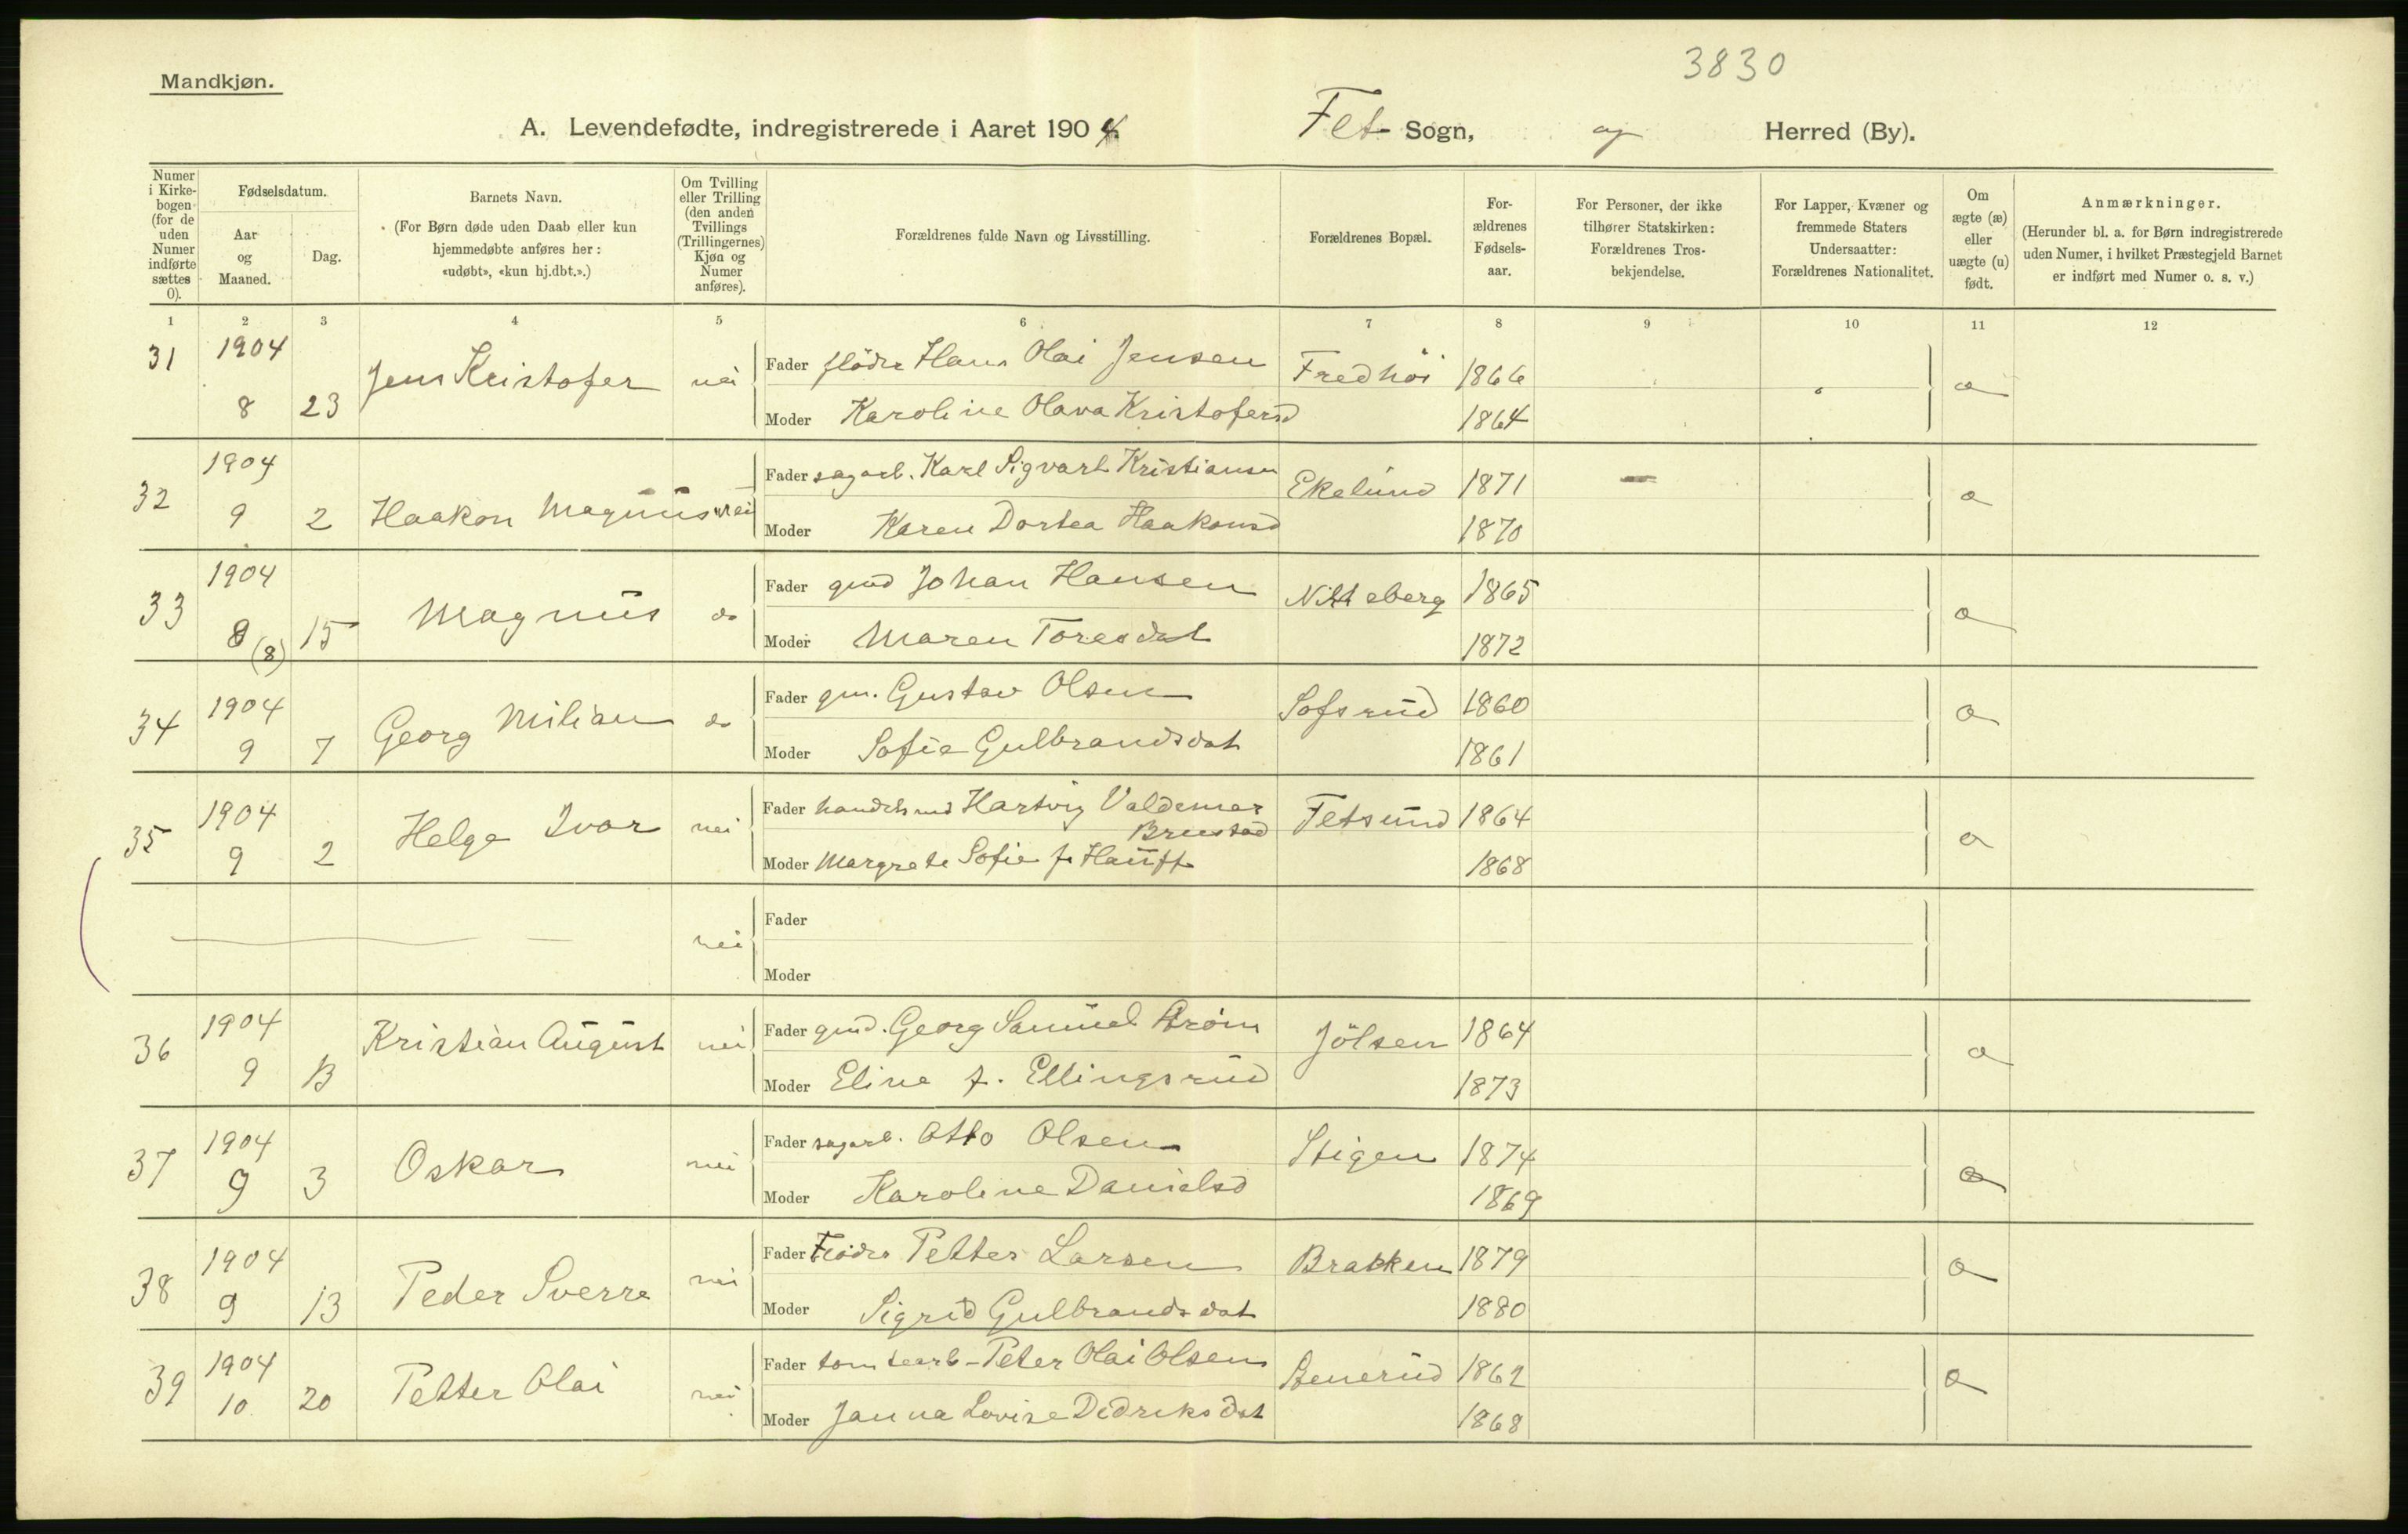 3830
Mandkjøn.
A. Levendefødte, indregistrerede i Aaret 1904 Fet Sogn, og Herred (By).
Numer i Kirkebogen (for de uden Numer indførte sættes 0).
Fødselsdatum.
Aar og Maaned.
Dag.
Barnets Navn.
(For Børn døde uden Daab eller kun hjemmedøbte anføres her: «udøbt», «kun hj.dbt.».)
Om Tvilling eller Trilling (den anden Tvillings (Trillingernes) Kjøn og Numer anføres).
Forældrenes fulde Navn og Livsstilling.
Forældrenes Bopæl.
For-ældrenes Fødsels-aar.
For Personer, der ikke tilhører Statskirken: Forældrenes Tros-bekjendelse.
For Lapper, Kvæner og fremmede Staters Undersaatter: Forældrenes Nationalitet.
Om ægte (æ) eller uægte (u) født.
Anmærkninger.
(Herunder bl. a. for Børn indregistrerede uden Numer, i hvilket Præstegjeld Barnet er indført med Numer o. s. v.)
1 2 3 4 5 6 7 8 9 10 11 12
31 1904 8 23 Jens Kristofer nei Fader fløder Hans Olai Jensen Fredhöi 1866 a
Moder Karoline Olava Kristofersd 1864
32 1904 9 2 Haakon Magnus nei Fader sagarb. Karl Sigvart Kristiansen Ekelund 1871 — a
Moder Karen Dortea Haakonsd 1870
33 1904 8 (8) 15 Magnus do Fader gmd Johan Hansen Nitteberg 1865 a
Moder Maren Toresdat 1872
34 1904 9 7 Georg Milian do Fader gm. Gustav Olsen Sofsrud 1860 a
Moder Sofie Gulbrandsdat 1861
35 1904 9 2 Helge Ivar nei Fader handelsmd Hartvig Valdemar Brustad Fetsund 1864 a
Moder Margrete Sofie f. Hauff 1868
nei Fader
Moder
36 1904 9 13 Kristian August nei Fader gmd. Georg Samuel Strøm Jölsen 1864 a
Moder Eline f. Ellingsrud 1873
37 1904 9 3 Oskar nei Fader sagarb. Otto Olsen Stigen 1874 a
Moder Karoline Danielsd 1869
38 1904 9 13 Peder Sverre nei Fader Fløder Petter Larsen Brakken 1879 a
Moder Sigrid Gulbrandsdat 1880
39 1904 10 20 Petter Olai nei Fader tomtearb- Peter Olai Olsen Stenerud 1862 a
Moder Janna Lovise Dedriksdat 1868